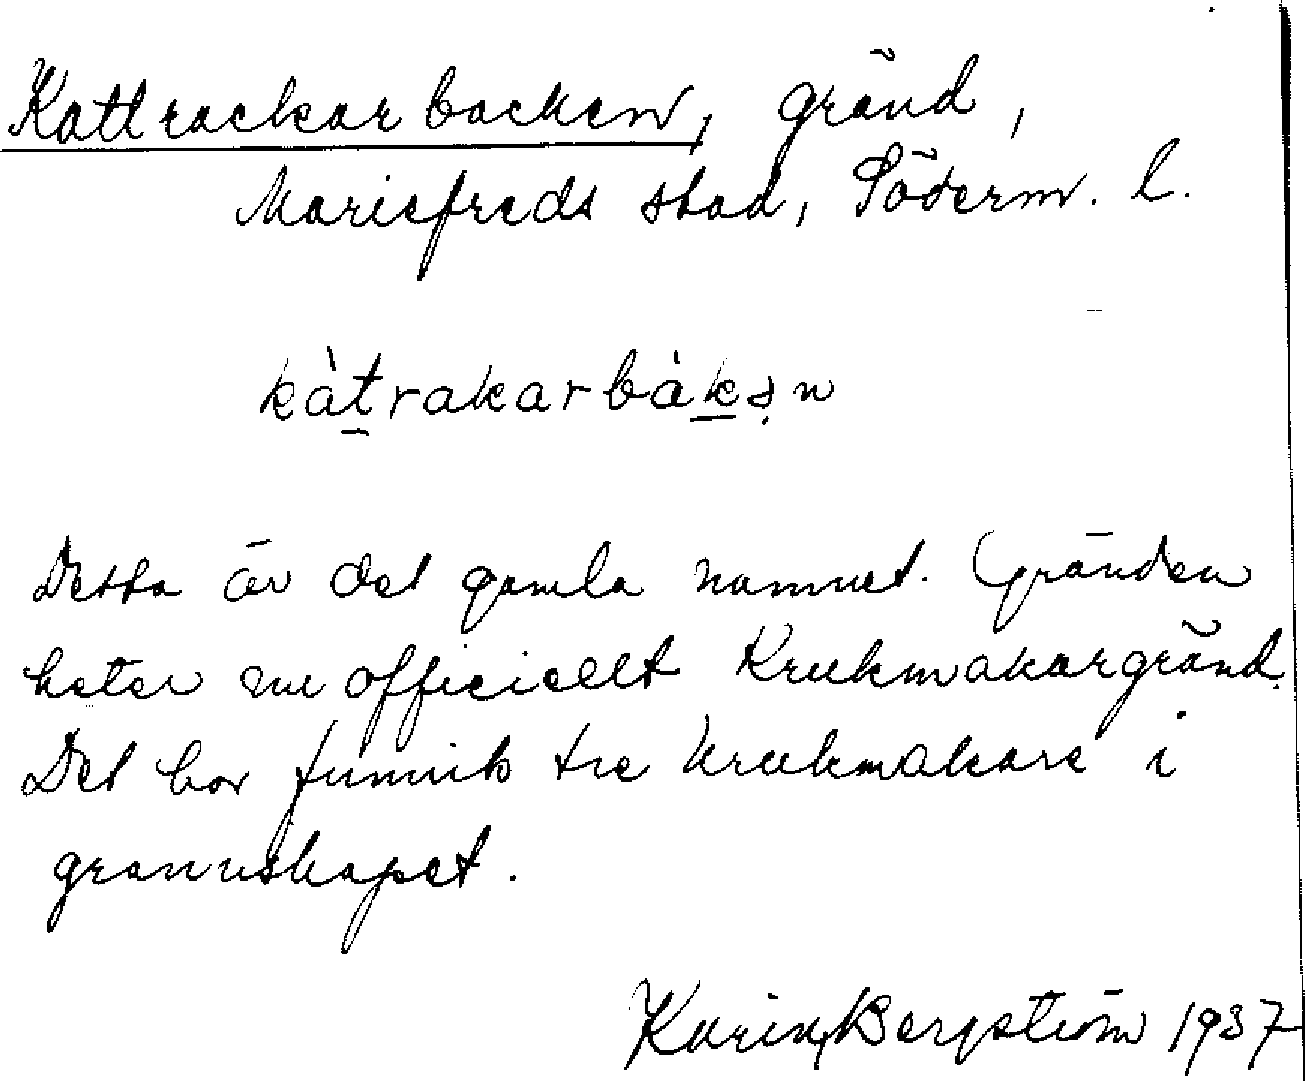 Kattrackarbacken, gränd,
Mariefreds stad, Söderm. l.
kàtrakarbàkən
Detta är det gamla namnet. Gränden
heter nu officiellt Krukmakargränd.
Det har funnits tre krukmakare i
grannskapet.
Karin Bergström 1937